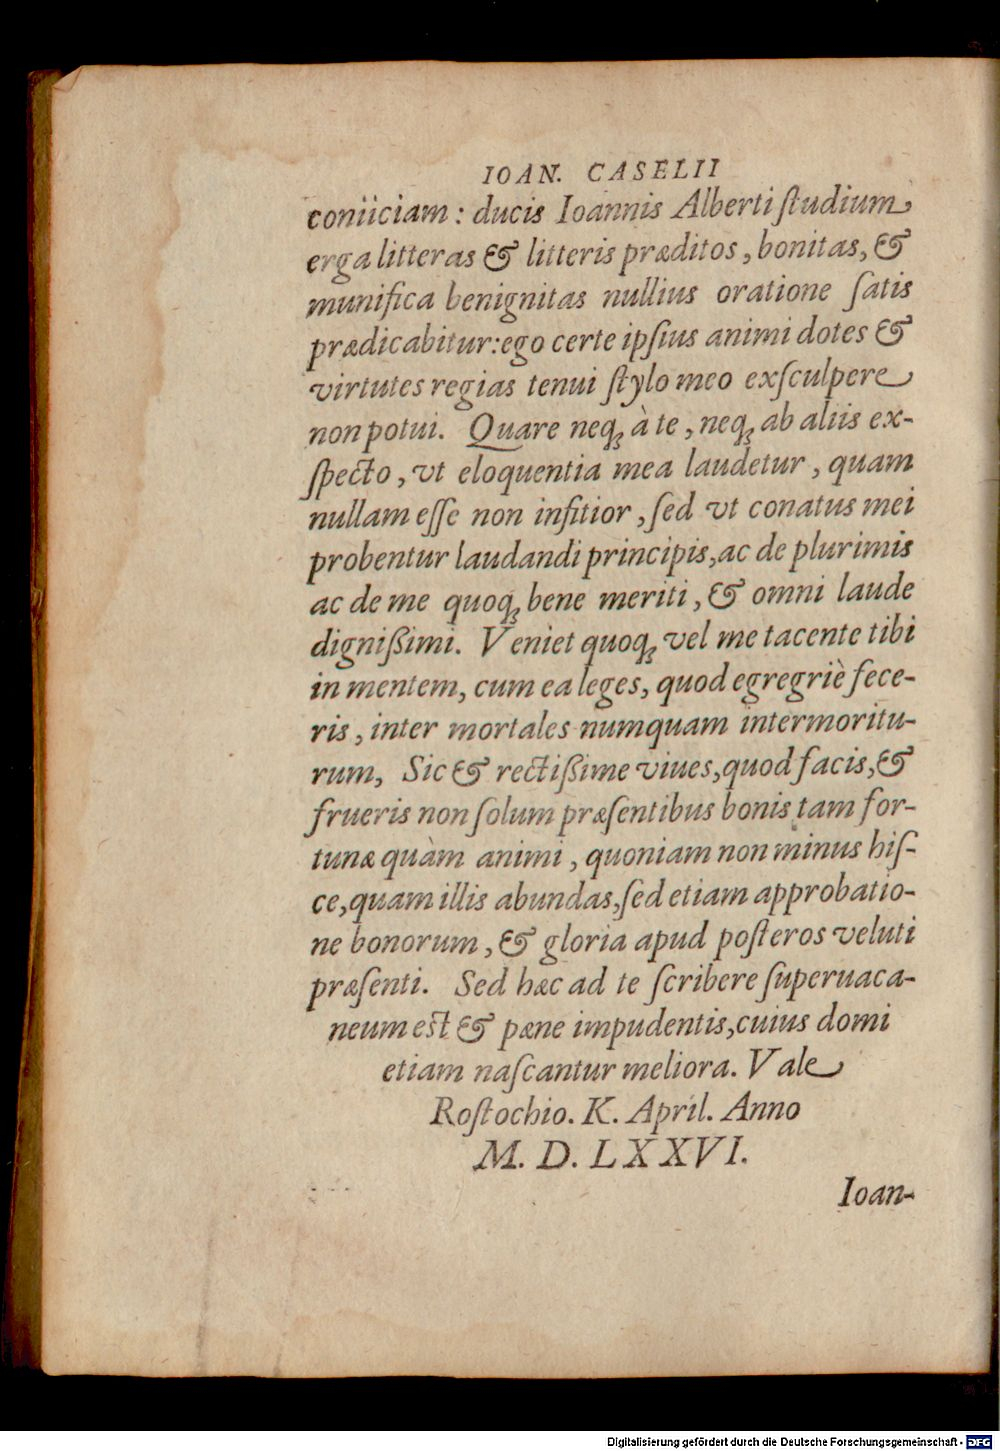 IOAN. CASELII
coniiciam: ducis Ioannis Alberti ſtudium
erga litteras & litteris præditos, bonitas, &
munifica benignitas nullius oratione ſatis
prædicabitur: ego certe ipſius animi dotes &
virtutes regias tenui ſtylo meo exſculpere
non potui. Quare neqꝫ à te, neqꝫ ab aliis ex-
ſpecto, vt eloquentia mea laudetur, quam
nullam eſſe non infitior, ſed vt conatus mei
probentur laudandi principis, ac de plurimis
ac de me quoqꝫ bene meriti, & omni laude
dignißimi. Veniet quoqꝫ vel me tacente tibi
in mentem, cum ea leges, quod egregriè fece-
ris, inter mortales numquam intermoritu-
rum, Sic & rectißime viues, quod facis, &
frueris non ſolum præſentibus bonis tam for-
tunæ quàm animi, quoniam non minus hiſ-
ce, quam illis abundas, ſed etiam approbatio-
ne bonorum, & gloria apud poſteros veluti
præſenti. Sed hæc ad te ſcribere ſuperuaca-
neum est & pæne impudentis, cuius domi
etiam naſcantur meliora. Vale
Roſtochio. K. April. Anno
M. D. LXXVI.
Ioan-
Digitalisierung gefördert durch die Deutsche Forschungsgemeinschaft - DFG